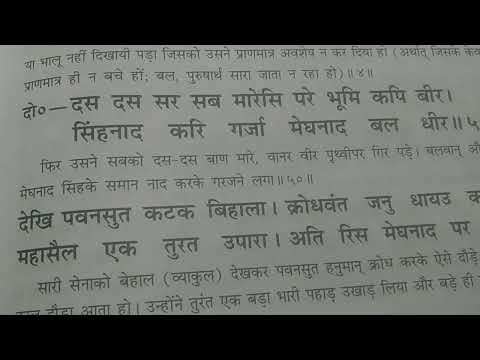 या भालू नहीं दिखायी पड़ा जिसको उसने प्राणमात्र अवशेष न कर दिया हो (अर्थात् जिसके केव
प्राणमात्र ही न बचे हों; बल, पुरुषार्थ सारा जाता न रहा हो)॥४॥
दो०—दस दस सर सब मारेसि परे भूमि कपि बीर।
सिंहनाद करि गर्जा मेघनाद बल धीर॥५
फिर उसने सबको दस-दस बाण मारे, वानर वीर पृथ्वीपर गिर पड़े। बलवान् औ
मेघनाद सिंहके समान नाद करके गरजने लगा॥५०॥
देखि पवनसुत कटक बिहाला। क्रोधवंत जनु धायउ क
महासैल एक तुरत उपारा। अति रिस मेघनाद पर
सारी सेनाको बेहाल (व्याकुल) देखकर पवनसुत हनुमान् क्रोध करके ऐसे दौड़े
दौड़ा आता हो। उन्होंने तुरंत एक बड़ा भारी पहाड़ उखाड़ लिया और बड़े ही